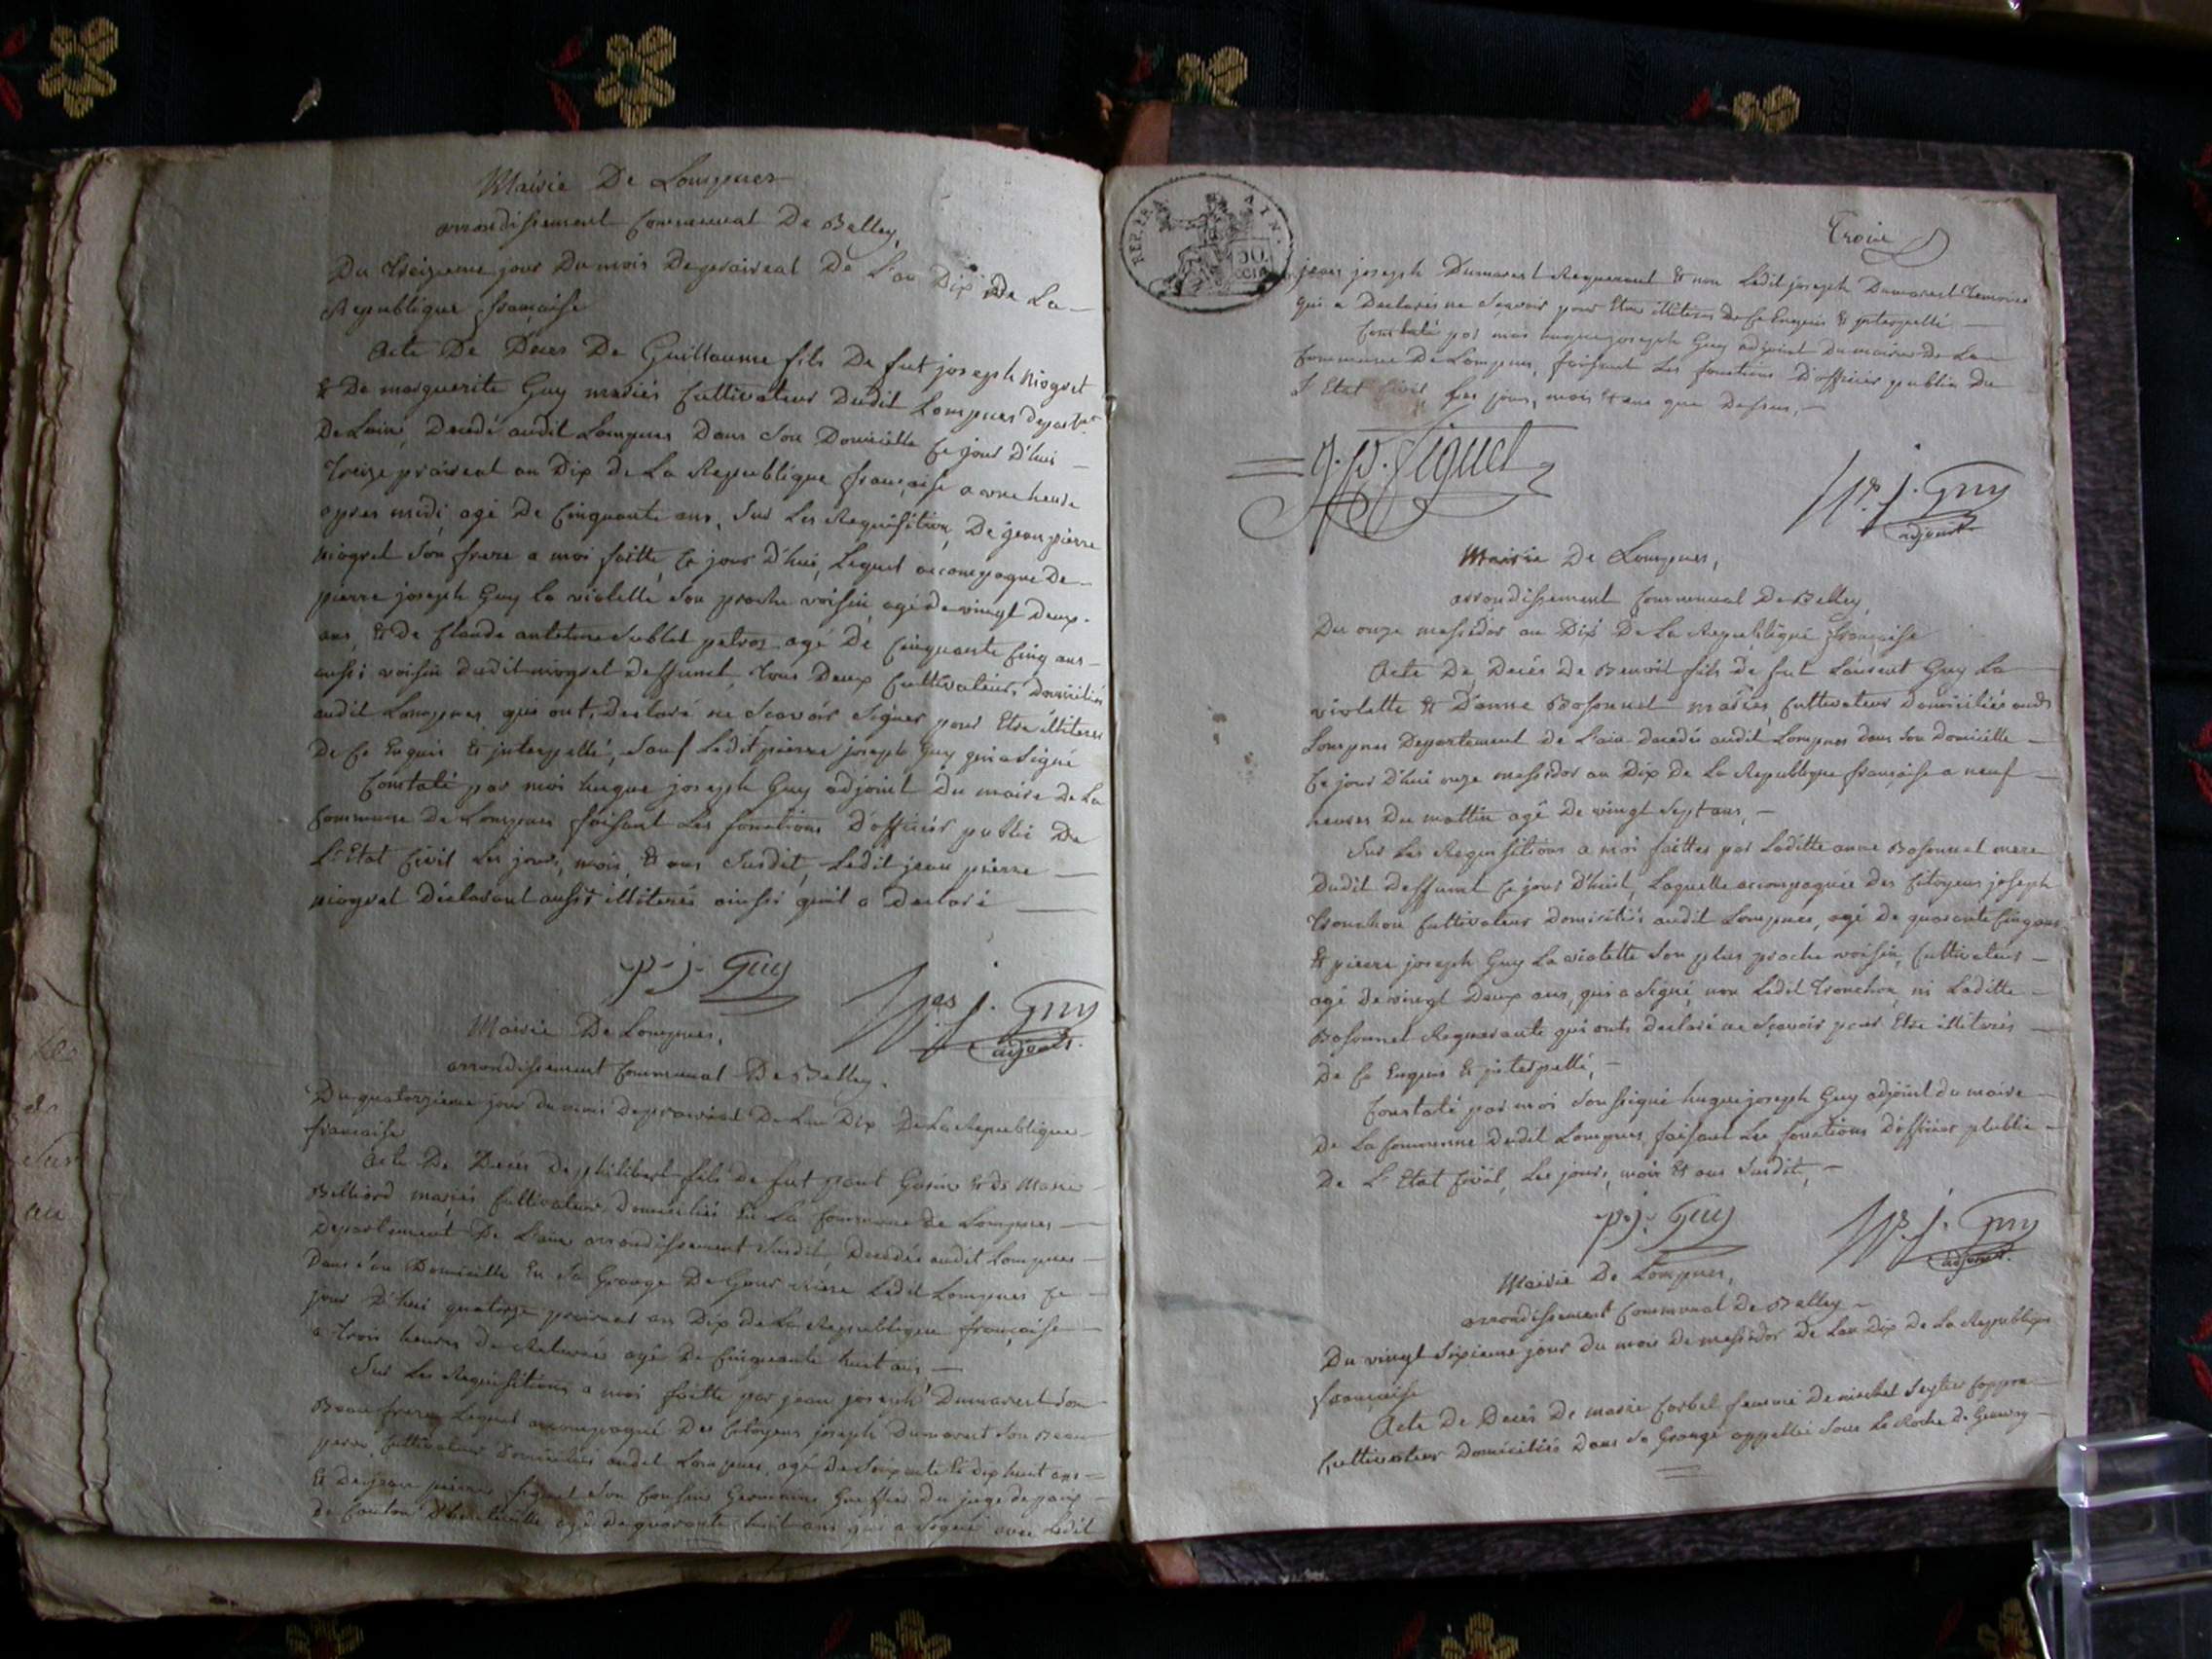 Mairie De Lompnes
arrondissement Communal De Belley,
Du treizieme jour Du mois De praireal De L'an Dix De La
Republique française
Acte De Deces De Guillaume fils De fut joseph Niogret
& De marguerite Guy mariés Cultivateur Dudit Lompnes departnt
De Lain, Decedé audit Lompnes Dans Son Domicille Ce jour D'hui
treize praireal an Dix de La Republique française a une heure
apres midi, agé De Cinquante ans, Sur Les Requisition De jean pierre
niogret Son frere a moi faitte, Ce jour D'hui, Lequel accompagné De
pierre joseph Guy la violette Son proche voisin agé de vingt Deux
ans, & De Claude antelme Sublet petroz agé De Cinquante Cinq ans
aussi voisin dudit niogret Deffunct, tous Deux Cultivateurs Domiciliés
audit Lompnes, qui ont Declaré ne Scavoir Signer pour Etre illiterés
De Ce Enquis & interpellé, Sauf Ledit pierre joseph Guy qui a Signé
Constaté par moi hugue joseph Guy adjoint Du maire De La
Commune de Lompnes faisant Les fonctions D'officier public De
L'Etat Civil Les jour, mois, & ans Susdit, Ledit jean pierre
niogret Déclarant aussi illiteré ainsi qu'il a Declaré
p. j. Guy
Hues j. Guy
adjoint.
Mairie De Lompnes,
arrondissement Communal De Belley.
Du quatorzieme jour du mois De praireal De L'an Dix De La Republique
française
Acte De Deces De philibert fils de fut Gasin & De Marie
Billiard mariés Cultivateur Domicilié En La Commune de Lompnes
Departement De L'ain arrondissement Susdit, Decedé audit Lompnes
Dans Son Domicille En Sa Grange De Ledit Lompnes Ce
jour D'hui quatorze praireal an Dix de La Republique française
a trois heures De Relevée agé De Cinquante huit ans,
Sur Les Requisitions a moi faitte par jean joseph Dumarest Son
Beau frere, Lequel accompagné Des Citoyens joseph Dumarest Son Beau
pere, Cultivateur Domicilié audit Lompnes, agé De Soixante & dix huit ans
& De jean pierre Siguet Son Cousin Germains Greffier Du juge de paix
de Canton D'hauteville agé De quarante huit ans qui a Signé avec Ledit
REP. FRA. AIN.
Troix
jean joseph Dumarest Requerant & non Ledit joseph Dumarest temoins
qui a Declaré ne Scavoir pour Etre illiteré De Ce Enquis & interpellé
Constaté par moi hugue joseph Guy adjoint Du maire De La
Commune De Lompnes, faisant Les fonctions D'officier public De
L'Etat Civil Les jour, mois & ans que Dessus,
J. P. Siguet
Hues j. Guy
adjoint
Mairie De Lompnes,
arrondissement Communal De Belley,
Du onze messidor an Dix De La Republique française
Acte De Deces De Benoit fils De fut Laurent Guy La
violette & D'anne Bosonnet mariés, Cultivateur Domicilié audt
Lompnes Departement de L'ain decedé audit Lompnes dans Son Domicille
Ce jour D'hui onze messidor an Dix De La Republique française a neuf
heures Du mattin agé De vingt Sept ans,
Sur Les Requisitions a moi faittes par Laditte anne Bosonnet mere
Dudit Deffunct Ce jour D'huit, Laquelle accompagnée Des Citoyens joseph
tronchon Cultivateur Domicilié audit Lompnes, agé De quarante Cinq ans
& pierre joseph Guy La violette Son plus proche voisin, Cultivateur
agé De vingt Deux ans, qui a Signé, non Ledit tronchon, ni Laditte
Bosonnet Requerante qui onts Declaré ne Sçavoir pour Etre illiterés
De Ce Enquis & interpellé,
Constaté par moi Soussigné hugue joseph Guy adjoint du maire
De La Commune Dudit Lompnes, faisant Les fonctions D'officier publie
De L'Etat Civil, Les jour, mois & ans Susdit,
p. j. Guy
Hues j. Guy
adjoint.
Mairie De Lompnes,
arrondissement Communal De Belley
Du vingt Sixieme jour Du mois De messidor De L'an Dix De La Republique
française
Acte De Deces De marie Corbet femme De michel
Cultivateur Domiciliée Dans Sa Grange appellée Sous La Roche De